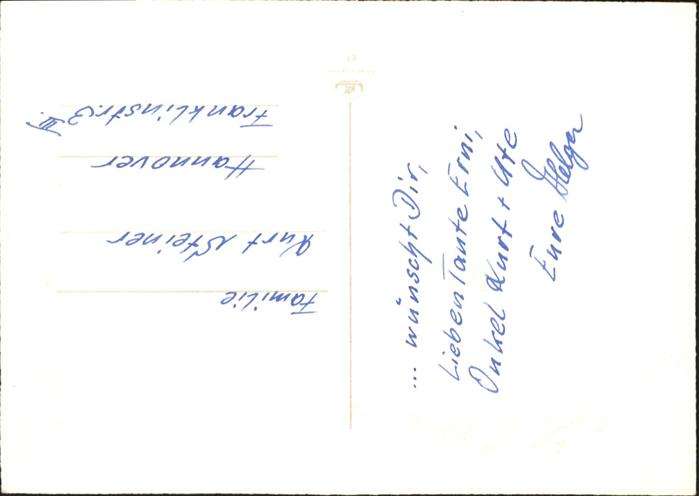 ... wünscht Dir,
lieben Tante Erni,
Onkel Kurt + Ute
Eure Helga
Familie
Kurt Steiner
Hannover
Franklinstr. 3 III.